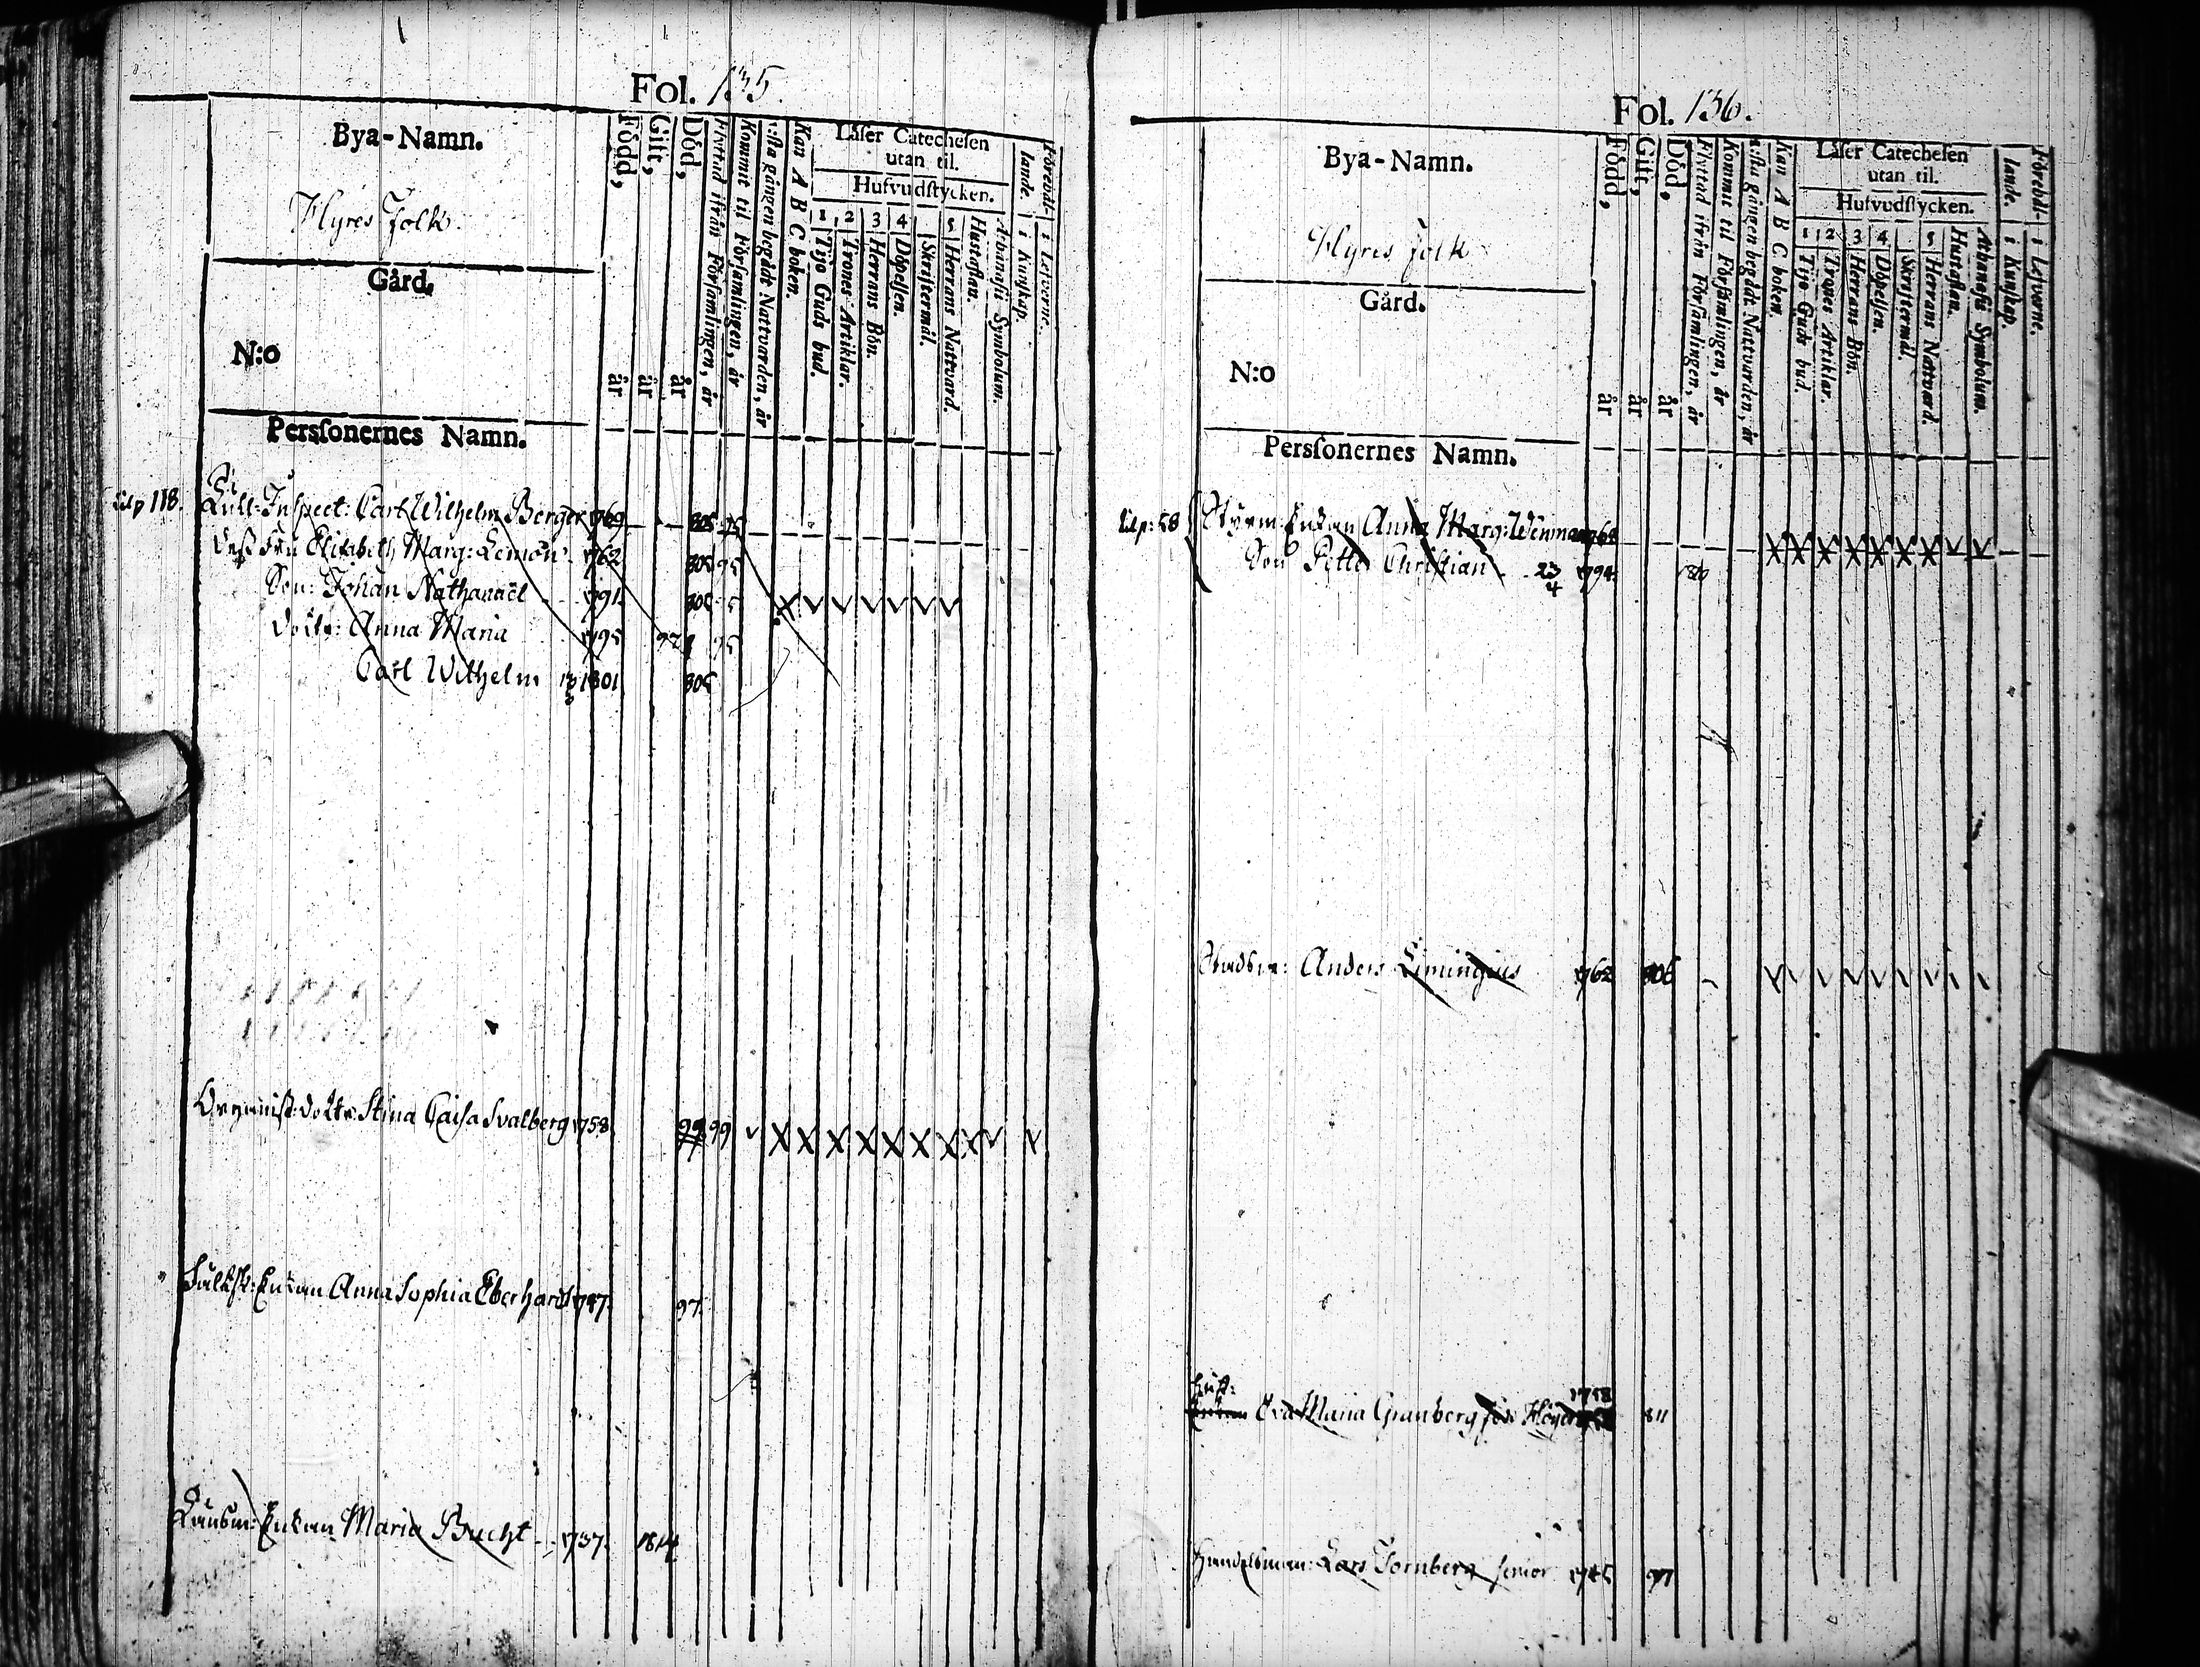 Fol. 135.
Bya-Namn.
Hyres Folk.
Gård.
N:o
Persſonernes Namn.
Född, år
Gift, år
Död, år
Flyttad ifrån Förſamlingen, år
Kommit til Förſamlingen, år
1:ſta gången begådt Nattvarden, år
Kan A B C boken.
Låſer Catecheſen
utan til.
Hufvudſtycken.
1 2 3 4 5
Tijo Guds bud.
Trones Artiklar.
Herrans Bön.
Döpelſen.
Skriftermål.
Herrans Nattvard.
Huſtaflan.
Athanaſii Symbolum.
Förehål-
lande.
i Kunſkap.
i Lefverne.
118.
Tull-Inspect: Carl Wilhelm Berger 1769 805 95
Deſs Fru Elisabeth Marg: 1762 805 95
Son: Johan Nathanaël 1791 805 95
Dottr: Anna Maria 1795 97 95
Carl Wilhelm 1801 805
Organist: Dottr Stina Cajsa Svalberg 1758 99 99
Enkan Anna Sophia Eberhard 97.
Enkan Maria Bucht 1737. 1814
Fol. 136.
Bya-Namn.
Hyres folk
Gård.
N:o
Persſonernes Namn.
Född, år
Gift, år
Död, år
Flyttad ifrån Förſamlingen, år
Kommit til Förſamlingen, år
1:ſta gången begådt Nattvarden, år
Kan A B C boken.
Låſer Catecheſen
utan til.
Hufvudſtycken.
1 2 3 4 5
Tijo Guds bud.
Trones Artiklar.
Herrans Bön.
Döpelſen.
Skriftermål.
Herrans Nattvard.
Huſtaflan.
Athanaſii Symbolum.
Förehål-
lande.
i Kunſkap.
i Lefverne.
58
Styrm: Enkan Anna Marg:
Son Petter Christian 23/4 1794
Anders Limingius 1762 806
Hust:
1758
Eva Maria Granberg 811
Handelsman: Lars Tornberg senior 1745 97